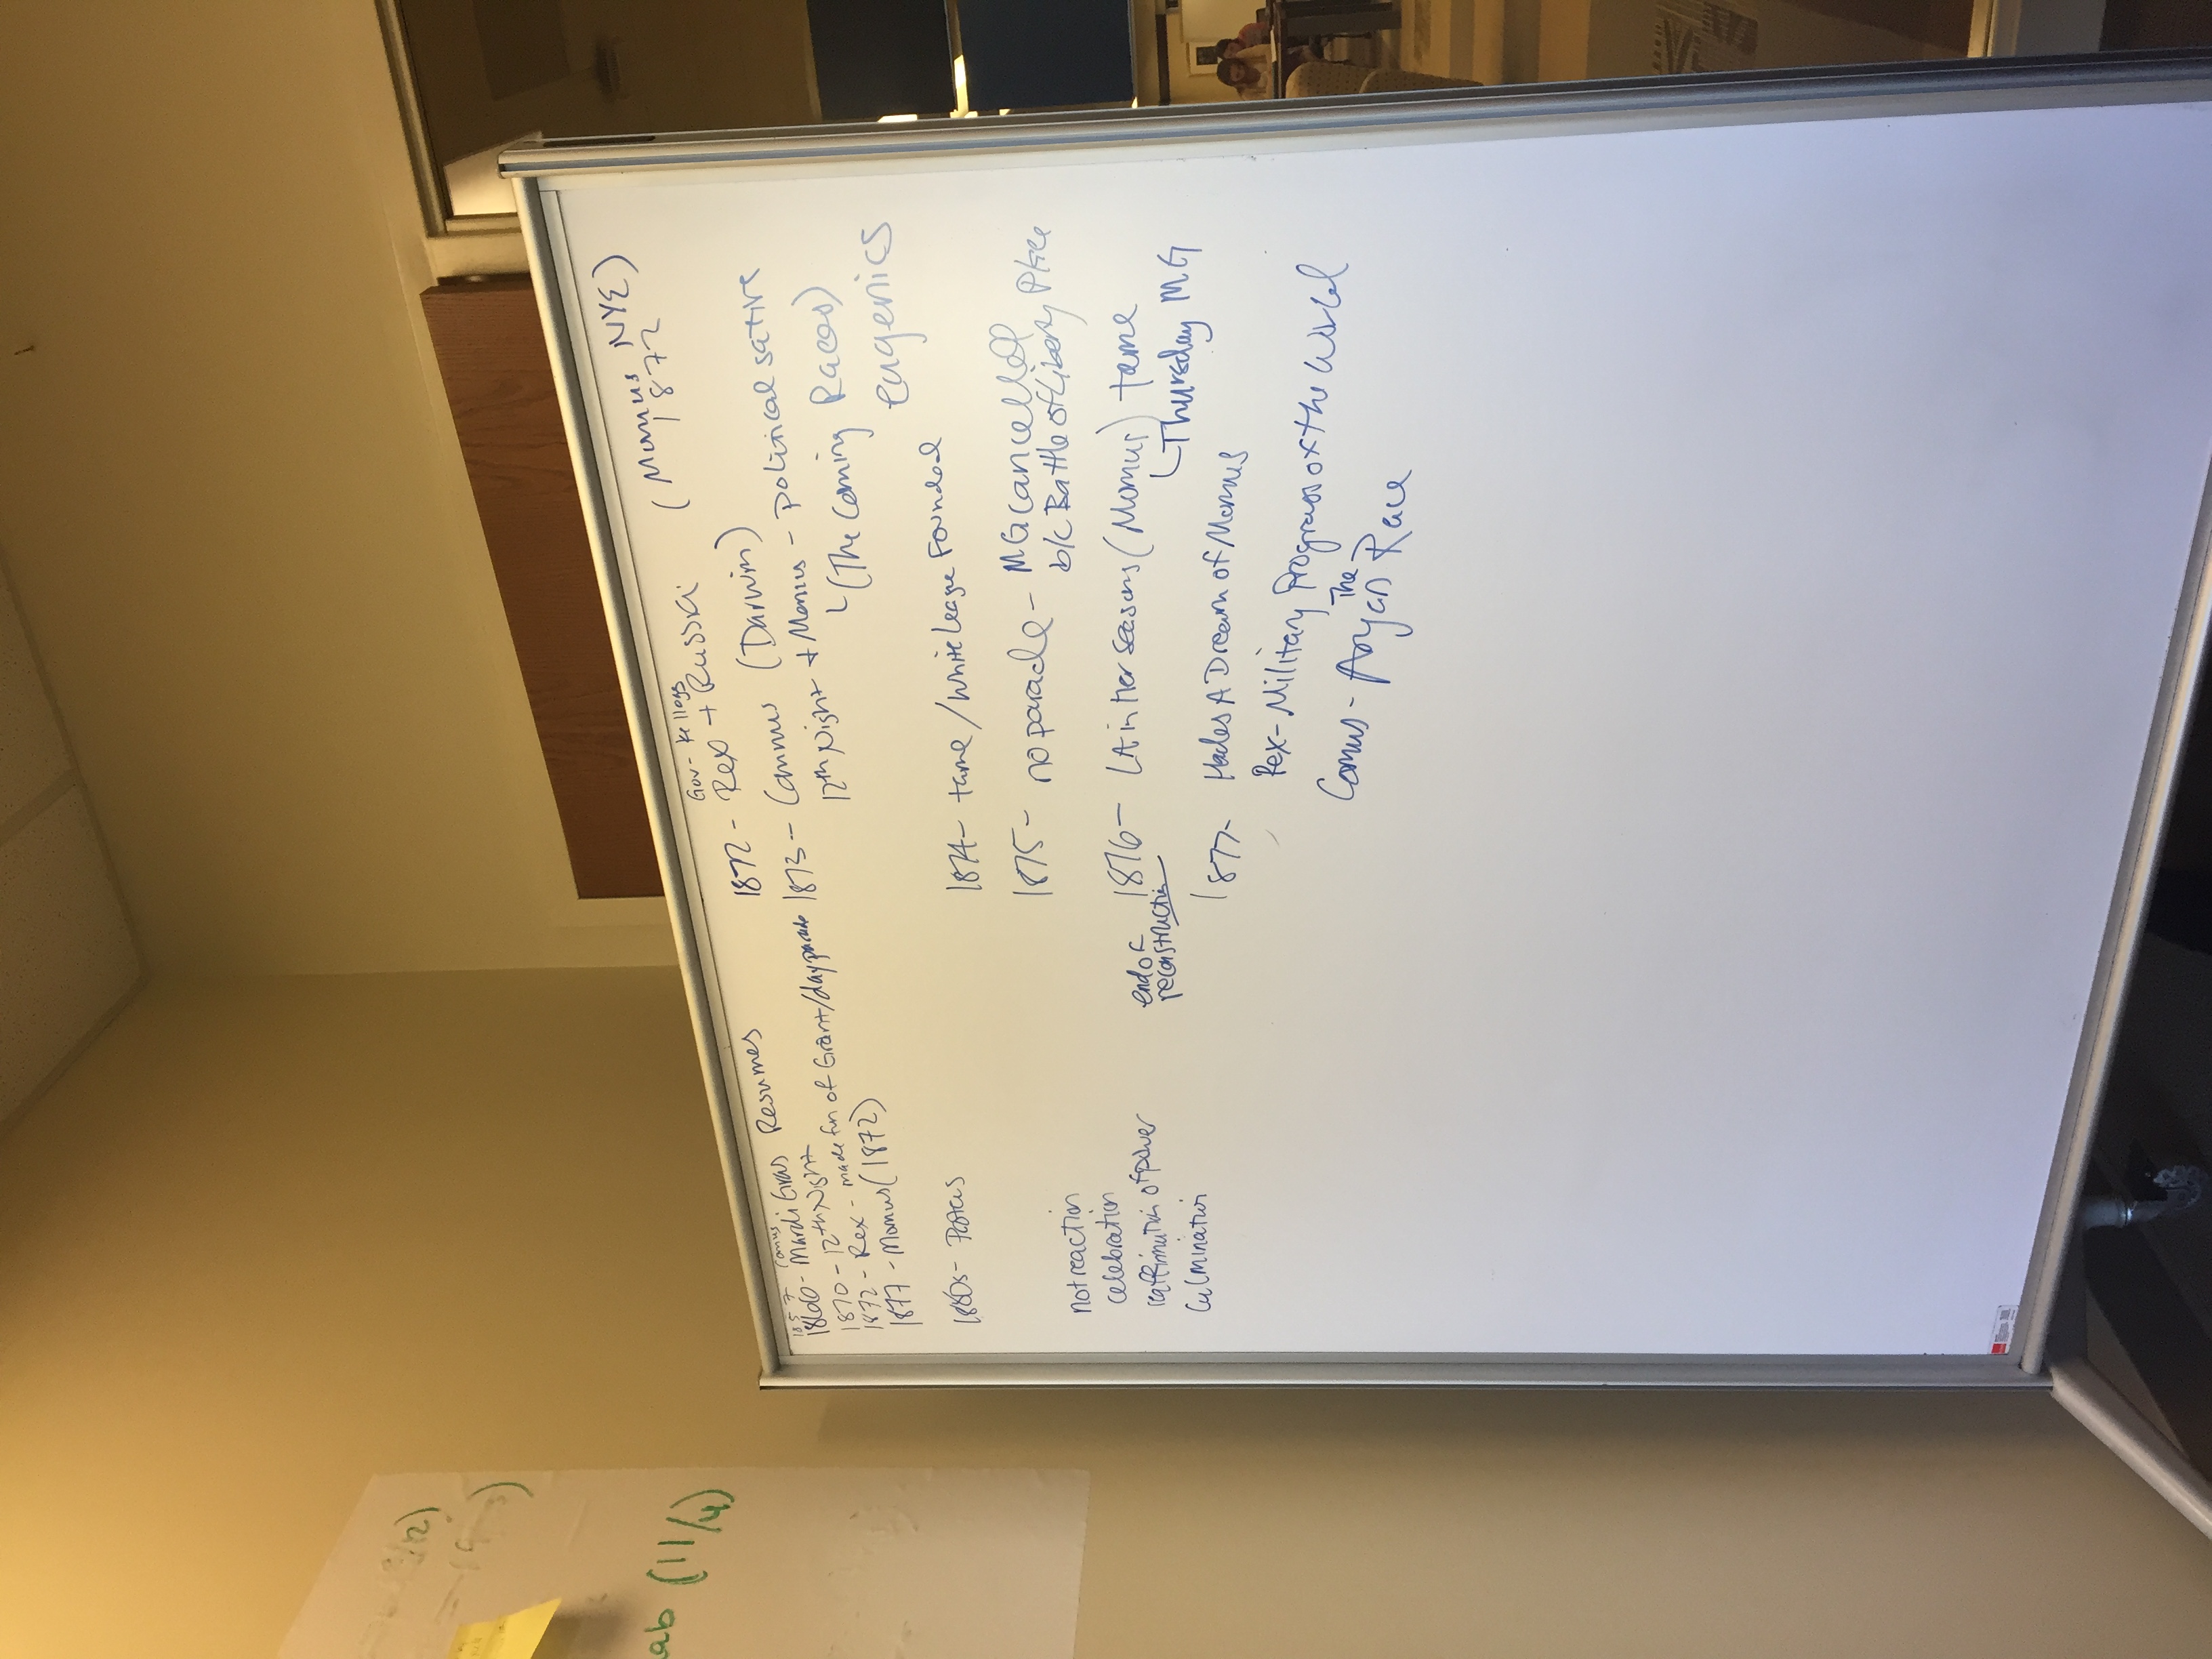 ab (11/4)
1857 Comus
1866 - Mardi Gras Resumes
1870 - 12th Night
1872 - Rex - made fun of Grant/day parade
1877 - Momus (1872)
1880s - Proteus
not reaction
celebration
reaffirmation of power
Culmination
Gov - Kellogg
1872 - Rex + Russki
(Momus NYE)
1872
1873 - Commus (Darwin)
12th Night + Momus - political satire
(The Coming Races)
eugenics
1874 - tame / White League Founded
1875 - no parade - MG cancelled
b/c Battle of Liberty Place
end of
reconstruction
1876 - LA in Her Seasons (Momus) tame
Thursday MG
1877 - Hades A Dream of Momus
Rex - Military Progress of the World
Comus - The Aryan Race